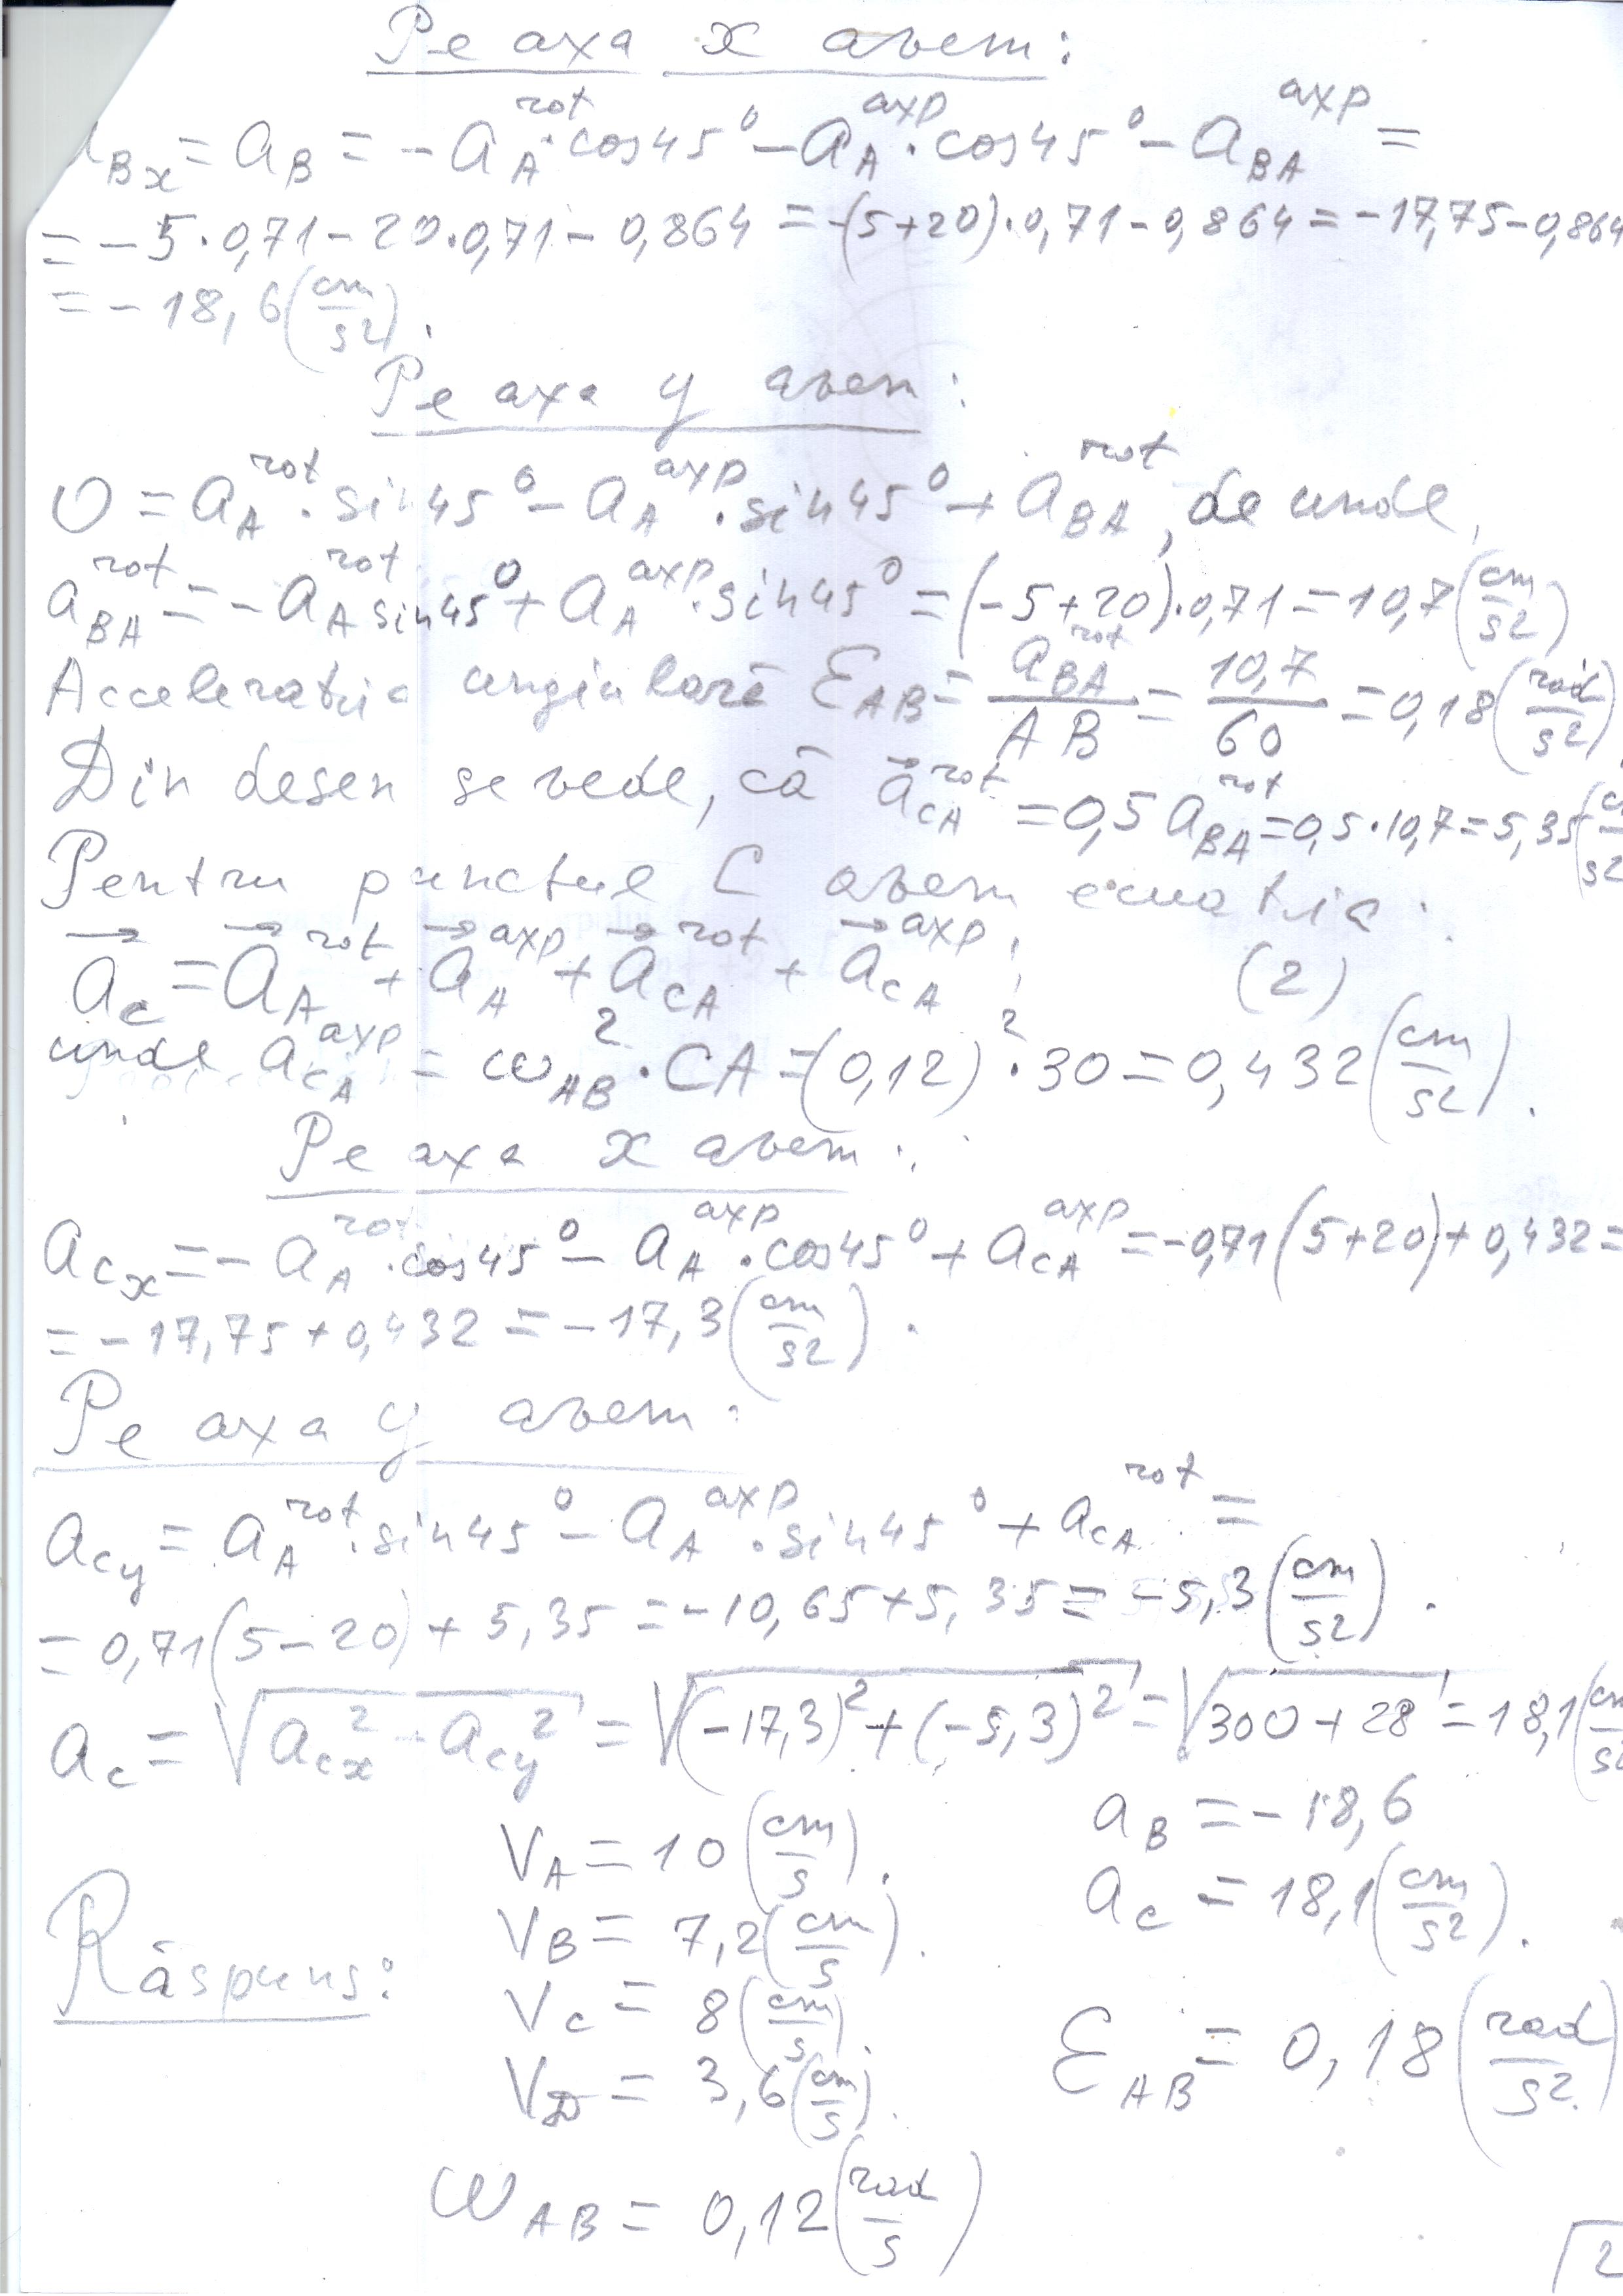 Pe axa x avem:
Bx = aB = - aA^rot · cos45° - aA^axp · cos45° - aBA^axp =
= - 5·0,71 - 20·0,71 - 0,864 = -(5+20)·0,71 - 0,864 = -17,75 - 0,864
= - 18,6 (cm/s2).
Pe axa y avem:
0 = aA^rot · sin45° - aA^axp · sin45° + aBA^rot, de unde,
aBA^rot = - aA^rot sin45° + aA^axp · sin45° = (-5+20)·0,71 = 10,7 (cm/s2)
Acceleratia unghiulară EAB = aBA^rot/AB = 10,7/60 = 0,18 (rad/s2).
Din desen se vede, că aCA^rot = 0,5 aBA^rot = 0,5·10,7 = 5,35 (cm/s2
Pentru punctul C avem ecuatia:
aC = aA^rot + aA^axp + aCA^rot + aCA^axp; (2)
unde aCA^axp = ωAB^2 · CA = (0,12)^2 · 30 = 0,432 (cm/s2).
Pe axa x avem:
aCx = - aA^rot · cos45° - aA^axp · cos45° + aCA^axp = -0,71(5+20) + 0,432 =
= - 17,75 + 0,432 = - 17,3 (cm/s2).
Pe axa y avem:
aCy = aA^rot · sin45° - aA^axp · sin45° + aCA^rot =
= 0,71(5-20) + 5,35 = -10,65 + 5,35 = -5,3 (cm/s2).
aC = √(aCx^2 + aCy^2) = √((-17,3)^2 + (-5,3)^2) = √(300+28) = 18,1 (cm/s2
VA = 10 (cm/s).
aB = - 18,6
Răspuns:
VB = 7,2 (cm/s).
aC = 18,1 (cm/s2).
VC = 8 (cm/s).
VD = 3,6 (cm/s).
EAB = 0,18 (rad/s2)
ωAB = 0,12 (rad/s)
2